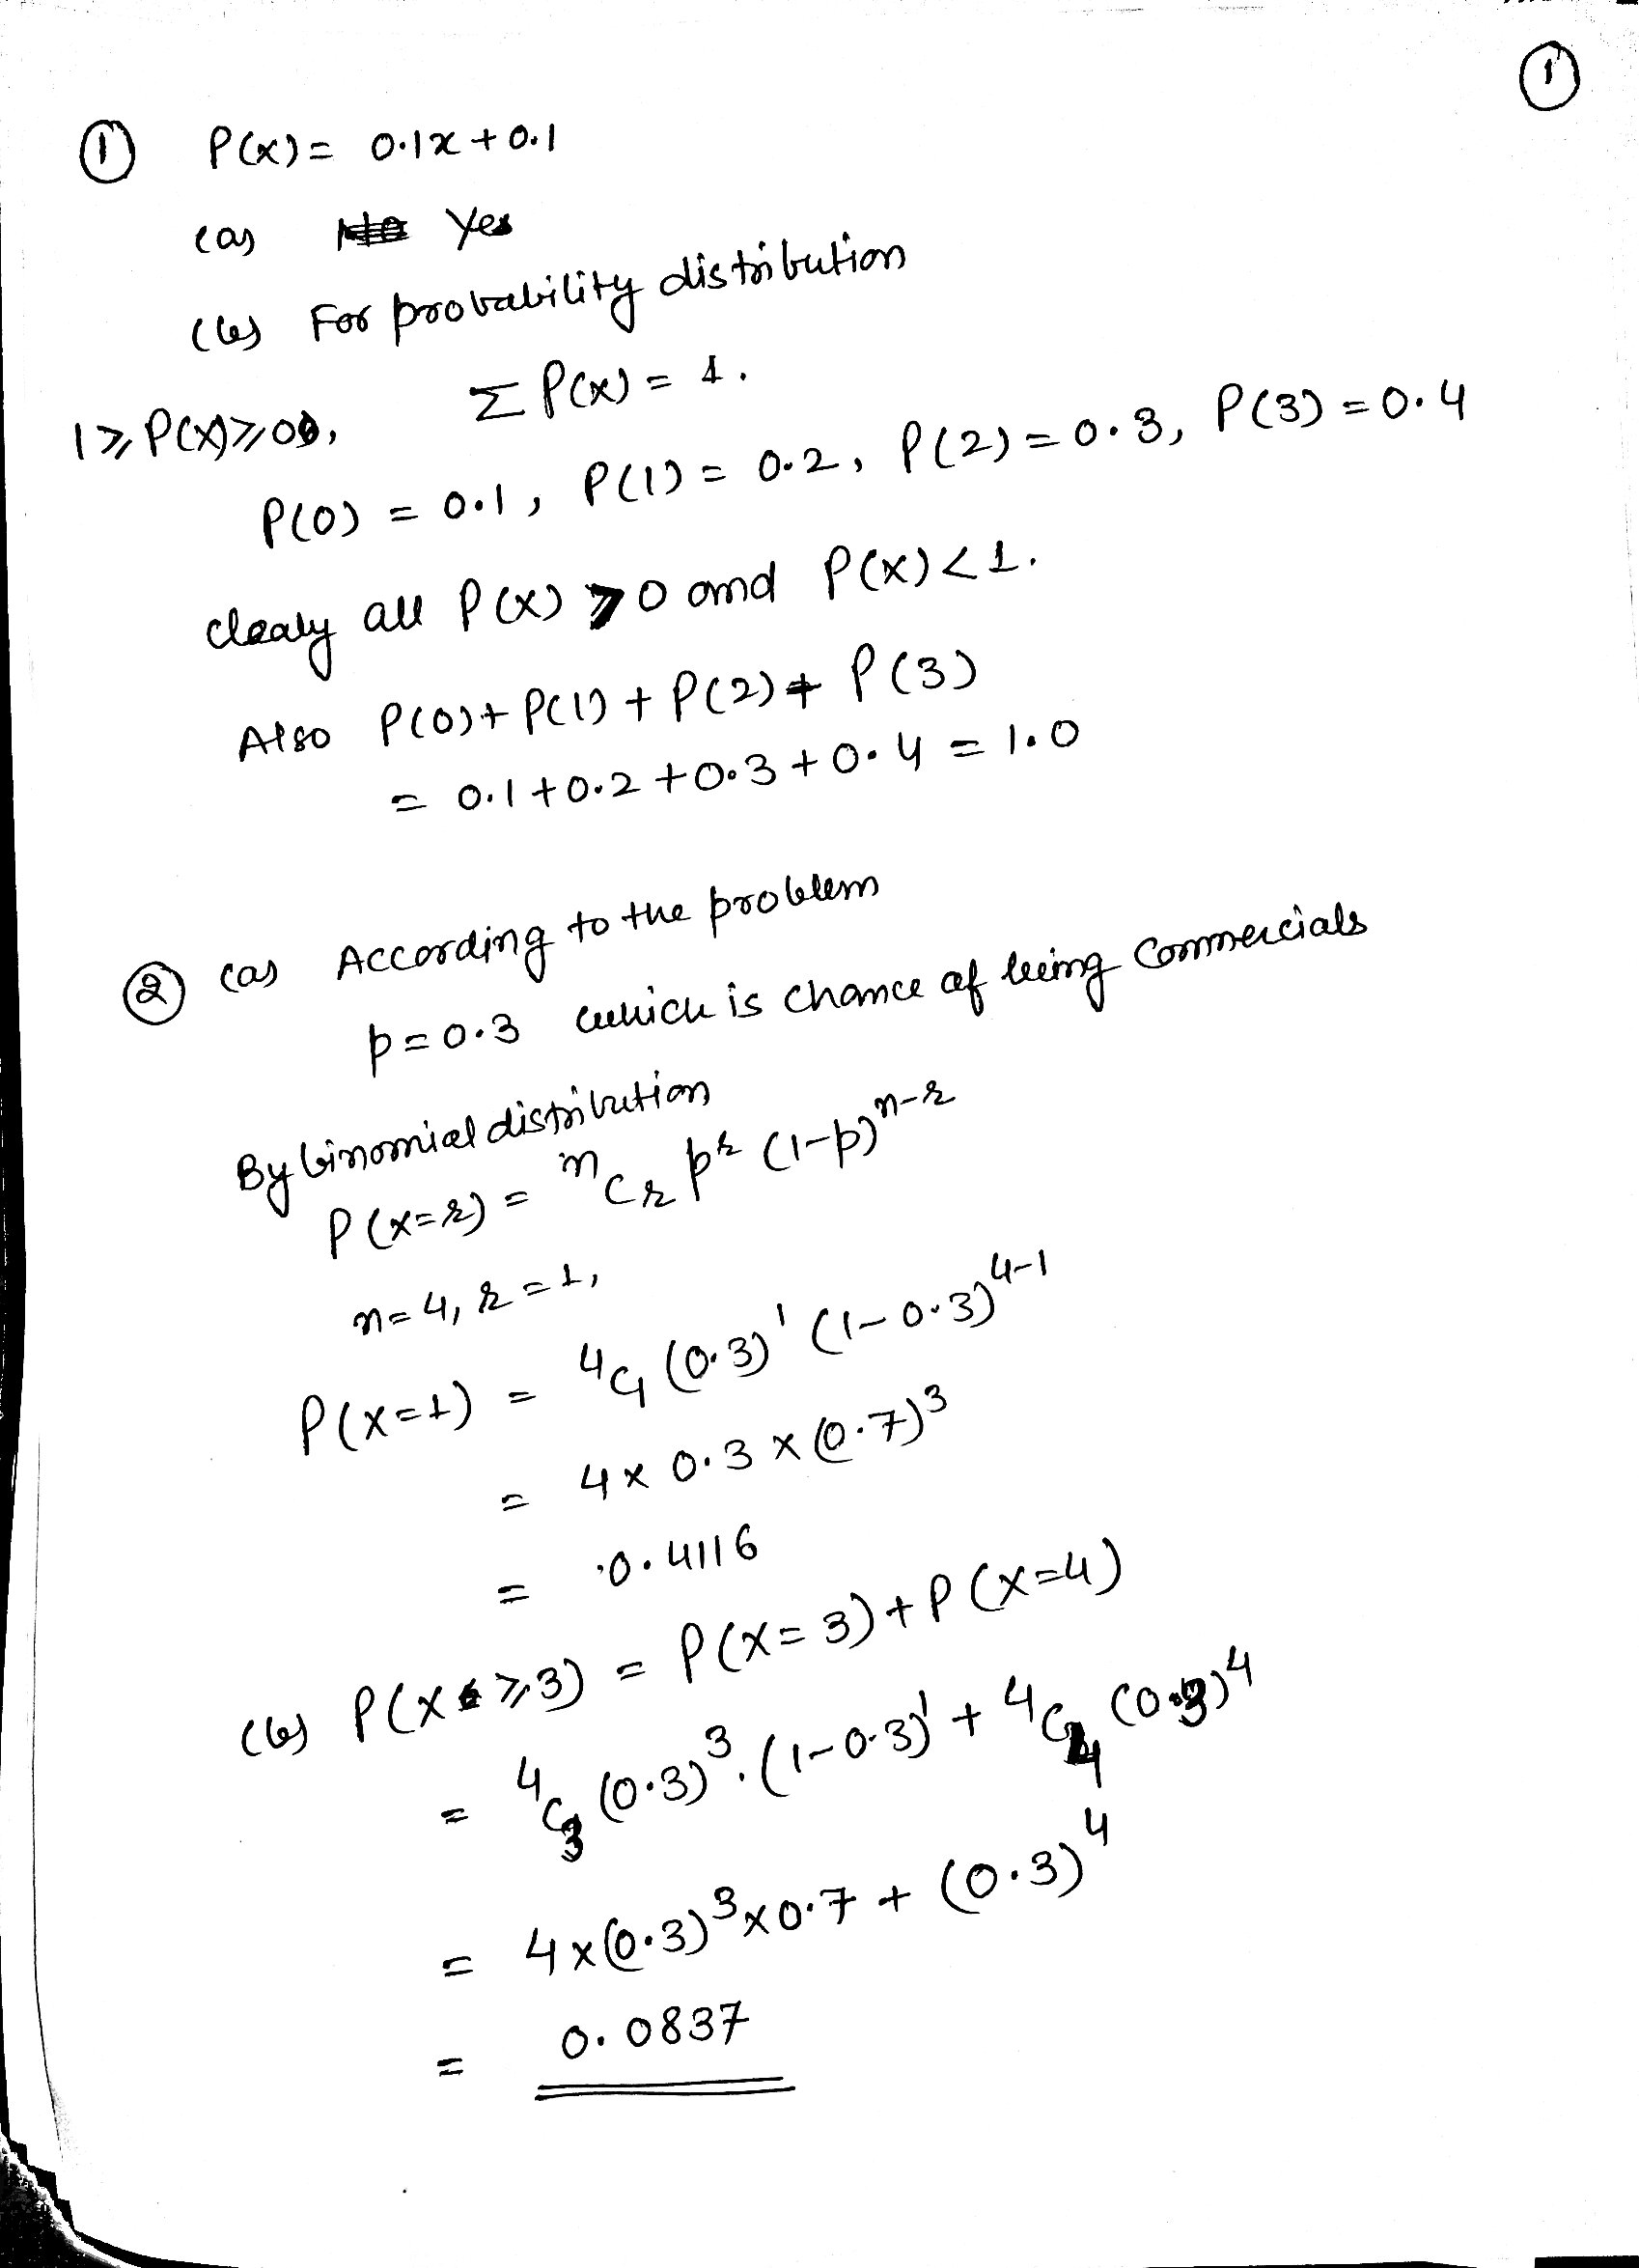 ①
① P(x) = 0.1x + 0.1
(a) Yes
(b) For probability distribution
1 ⩾ P(x) ⩾ 0, Σ P(x) = 1.
P(0) = 0.1, P(1) = 0.2, P(2) = 0.3, P(3) = 0.4
clealy all P(x) ⩾ 0 and P(x) < 1.
Also P(0) + P(1) + P(2) + P(3)
= 0.1 + 0.2 + 0.3 + 0.4 = 1.0
② (a) According to the problem
p = 0.3 which is chance of being commercials
By binomial distribution
P(x=r) = ⁿCᵣ pʳ (1-p)ⁿ⁻ʳ
n = 4, r = 1,
P(x=1) = ⁴C₁ (0.3)¹ (1-0.3)⁴⁻¹
= 4 × 0.3 × (0.7)³
= 0.4116
(b) P(x ⩾ 3) = P(x=3) + P(x=4)
= ⁴C₃ (0.3)³ . (1-0.3)¹ + ⁴C₄ (0.3)⁴
= 4 × (0.3)³ × 0.7 + (0.3)⁴
= 0.0837